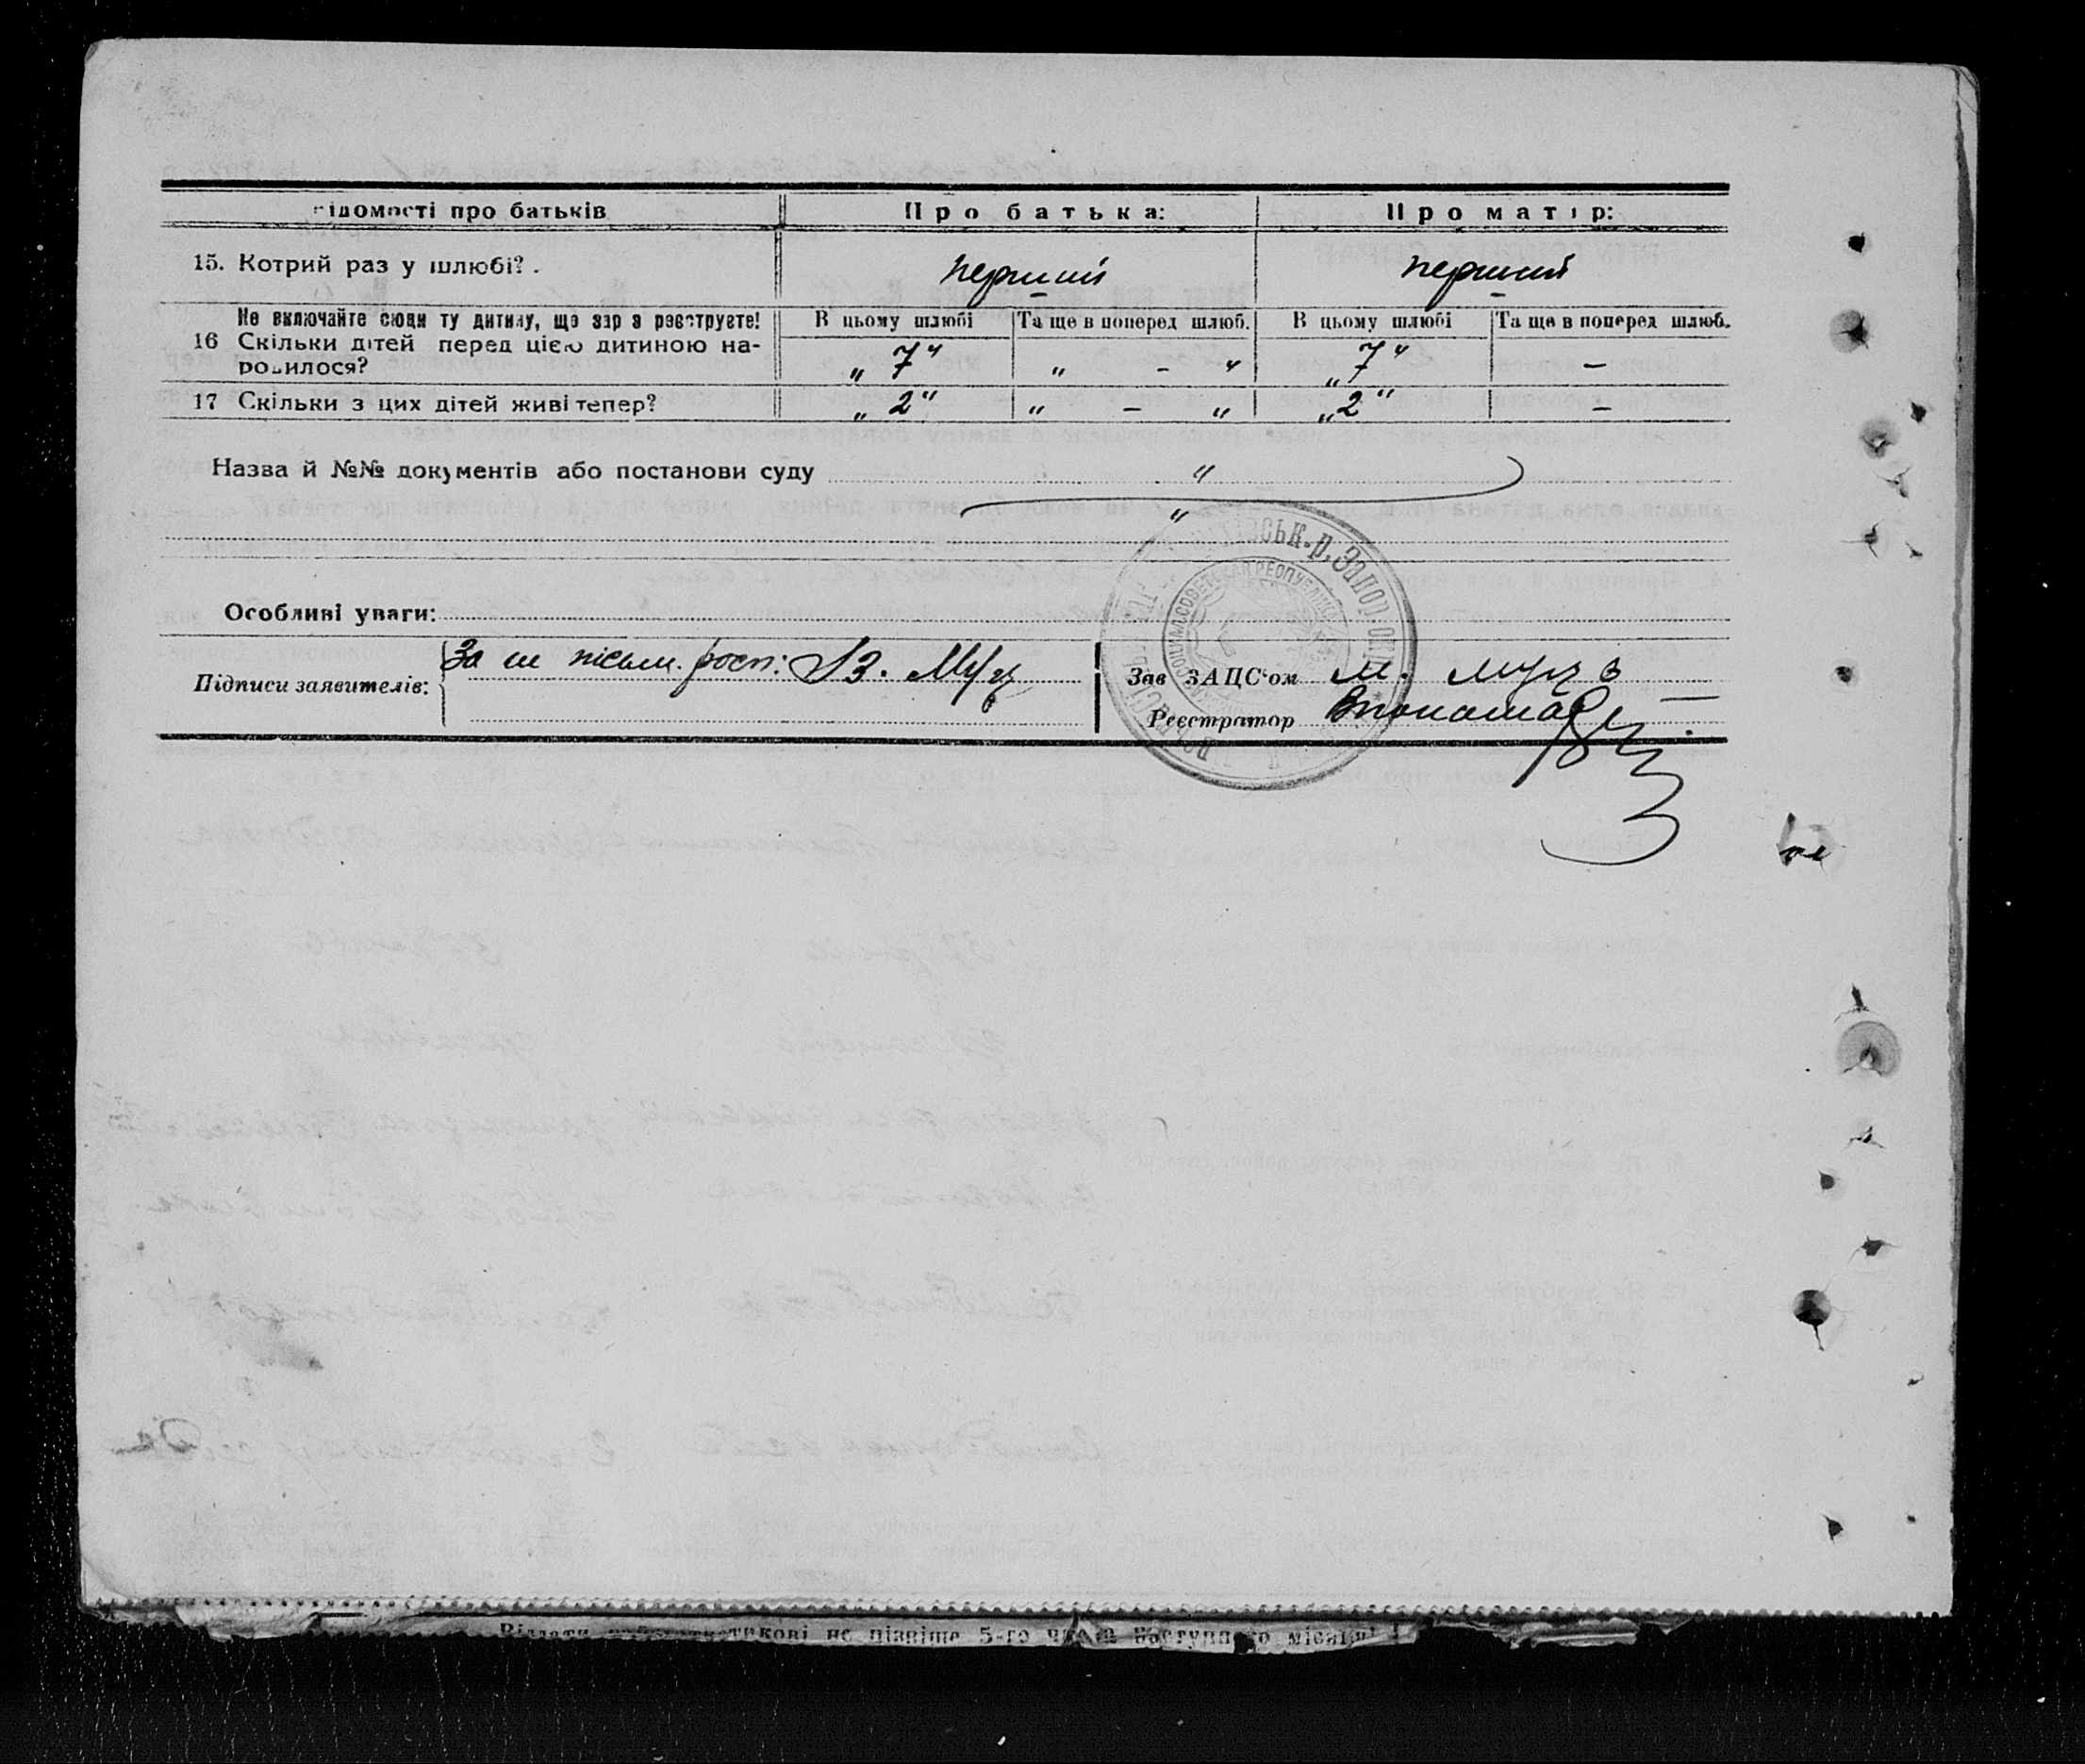 ідомості про батьків Про батька: Про матір:
15. Котрий раз у шлюбі? . перший перший
Не включайте сюди ту дитину, що зараз реєструєте! В цьому шлюбі Та ще в поперед шлюб. В цьому шлюбі Та ще в поперед шлюб.
16 Скільки дітей перед цією дитиною на-
родилося? „ 7 “ „ – “ „ 7 “ –
17 Скільки з цих дітей живі тепер? „ 2 “ „ – „ „ 2 “ –
Назва й №№ документів або постанови суду "
"
Особливі уваги:
Підписи заявителів: За
Зав ЗАЦС‘ом М.
Реєстратор
ськ-р, Запор.
не пізніше 5-го числа наступного місяця!